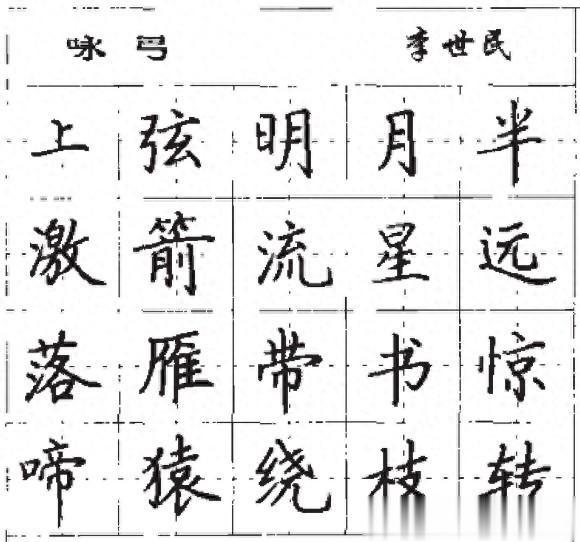 咏弓 李世民
上弦明月半
激箭流星远
落雁带书惊
啼猿绕枝转